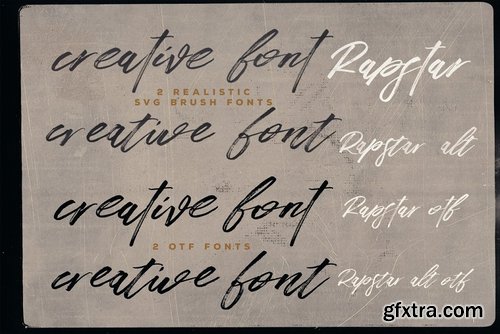 creative font Rapstar
2 REALISTIC
SVG BRUSH FONTS
creative font Rapstar alt
creative font Rapstar otf
2 OTF FONTS
creative font Rapstar alt otf
gfxtra.com